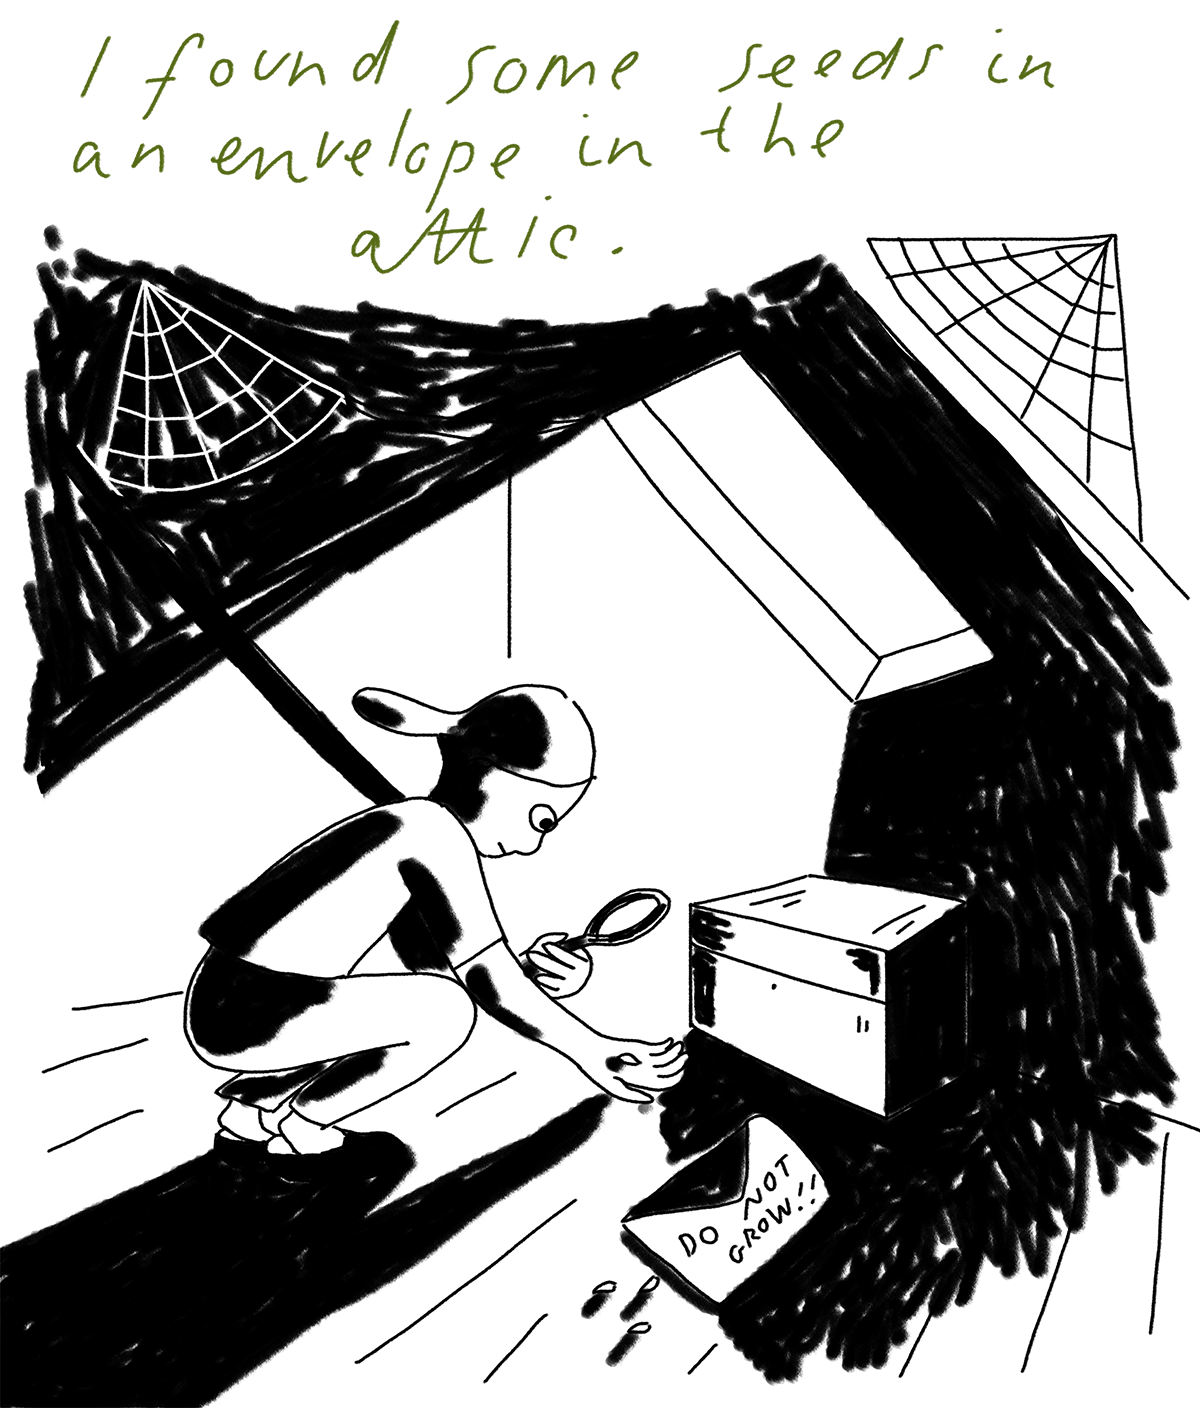 I found some seeds in
an envelope in the
attic.
DO NOT
GROW!!